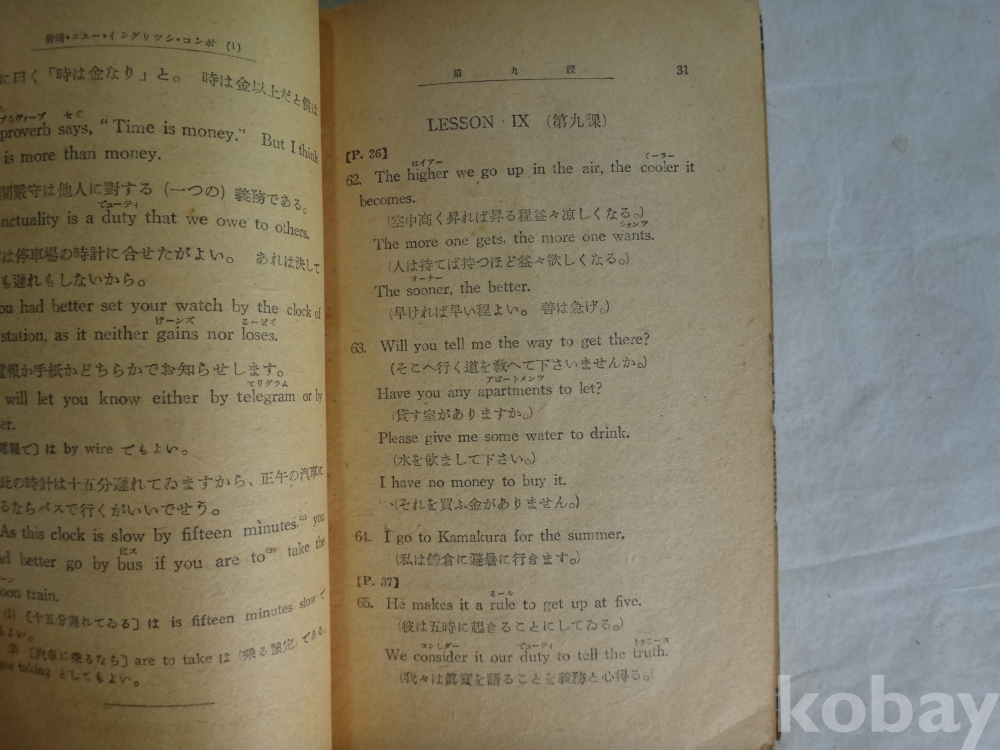 ニュー・イングリツシ・コンポ (1)
に曰く「時は金なり」と。 時は金以上だと僕は
proverb says, “Time is money.” But I think
is more than money.
間嚴守は他人に對する (一つの) 義務である。
デューティ
nctuality is a duty that we owe to others.
は停車場の時計に合せたがよい。 あれは決して
も遲れもしないから。
ou had better set your watch by the clock of
ゲーンズ
station, as it neither gains nor loses.
電報か手紙かどちらかでお知らせします。
テリグラム
will let you know either by telegram or by
er.
電報で〕は by wire でもよい。
此の時計は十五分遲れてゐますから、正午の汽車に
るならバスで行くがいいでせう。
As this clock is slow by fifteen minutes,⁽¹⁾ you
バス
ad better go by bus if you are to⁽²⁾ take the
oon train.
(1) 〔十五分遲れてゐる〕は is fifteen minutes slow で
もよい。
(2) 〔汽車に乘るなら〕 are to take は (乘る豫定) である。
are taking としてもよい。
第九課 31
LESSON IX (第九課)
[P. 36]
ハイアー クーラー
62. The higher we go up in the air, the cooler it
becomes.
(空中高く昇れば昇る程益々凉しくなる。)
ウォンツ
The more one gets, the more one wants.
(人は持てば持つほど益々欲しくなる。)
スーナー
The sooner, the better.
(早ければ早い程よい。 善は急げ。)
63. Will you tell me the way to get there?
(そこへ行く道を敎へて下さいませんか。)
アパートメンツ
Have you any apartments to let?
(貸す室がありますか。)
Please give me some water to drink.
(水を飮まして下さい。)
I have no money to buy it.
(それを買ふ金がありません。)
64. I go to Kamakura for the summer.
(私は鎌倉に避暑に行きます。)
[P. 37]
ルール
65. He makes it a rule to get up at five.
(彼は五時に起きることにしてゐる。)
コンシダー デューティ トゥルース
We consider it our duty to tell the truth.
(我々は眞實を語ることを義務と心得る。)
kobay